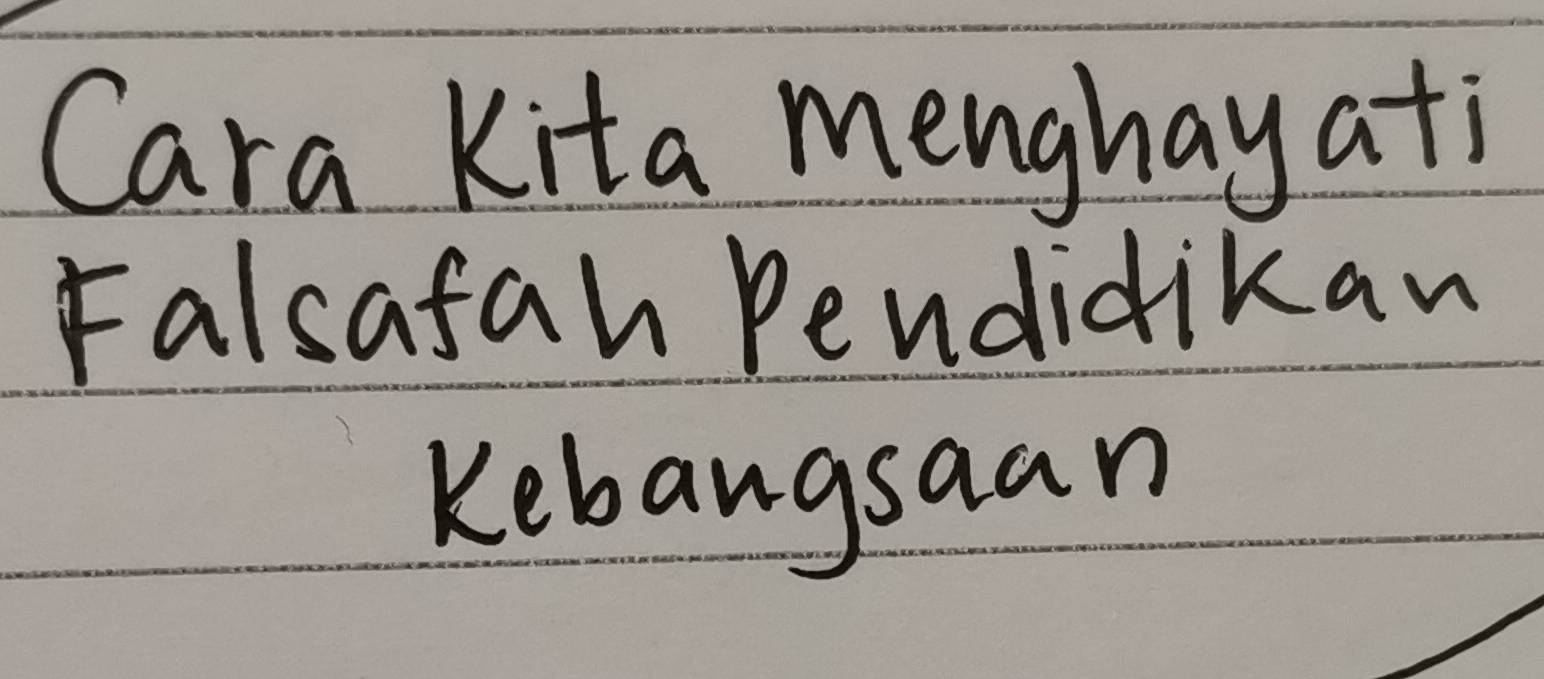 Cara Kita Menghayati
Falsafah Pendidikan
Kebangsaan